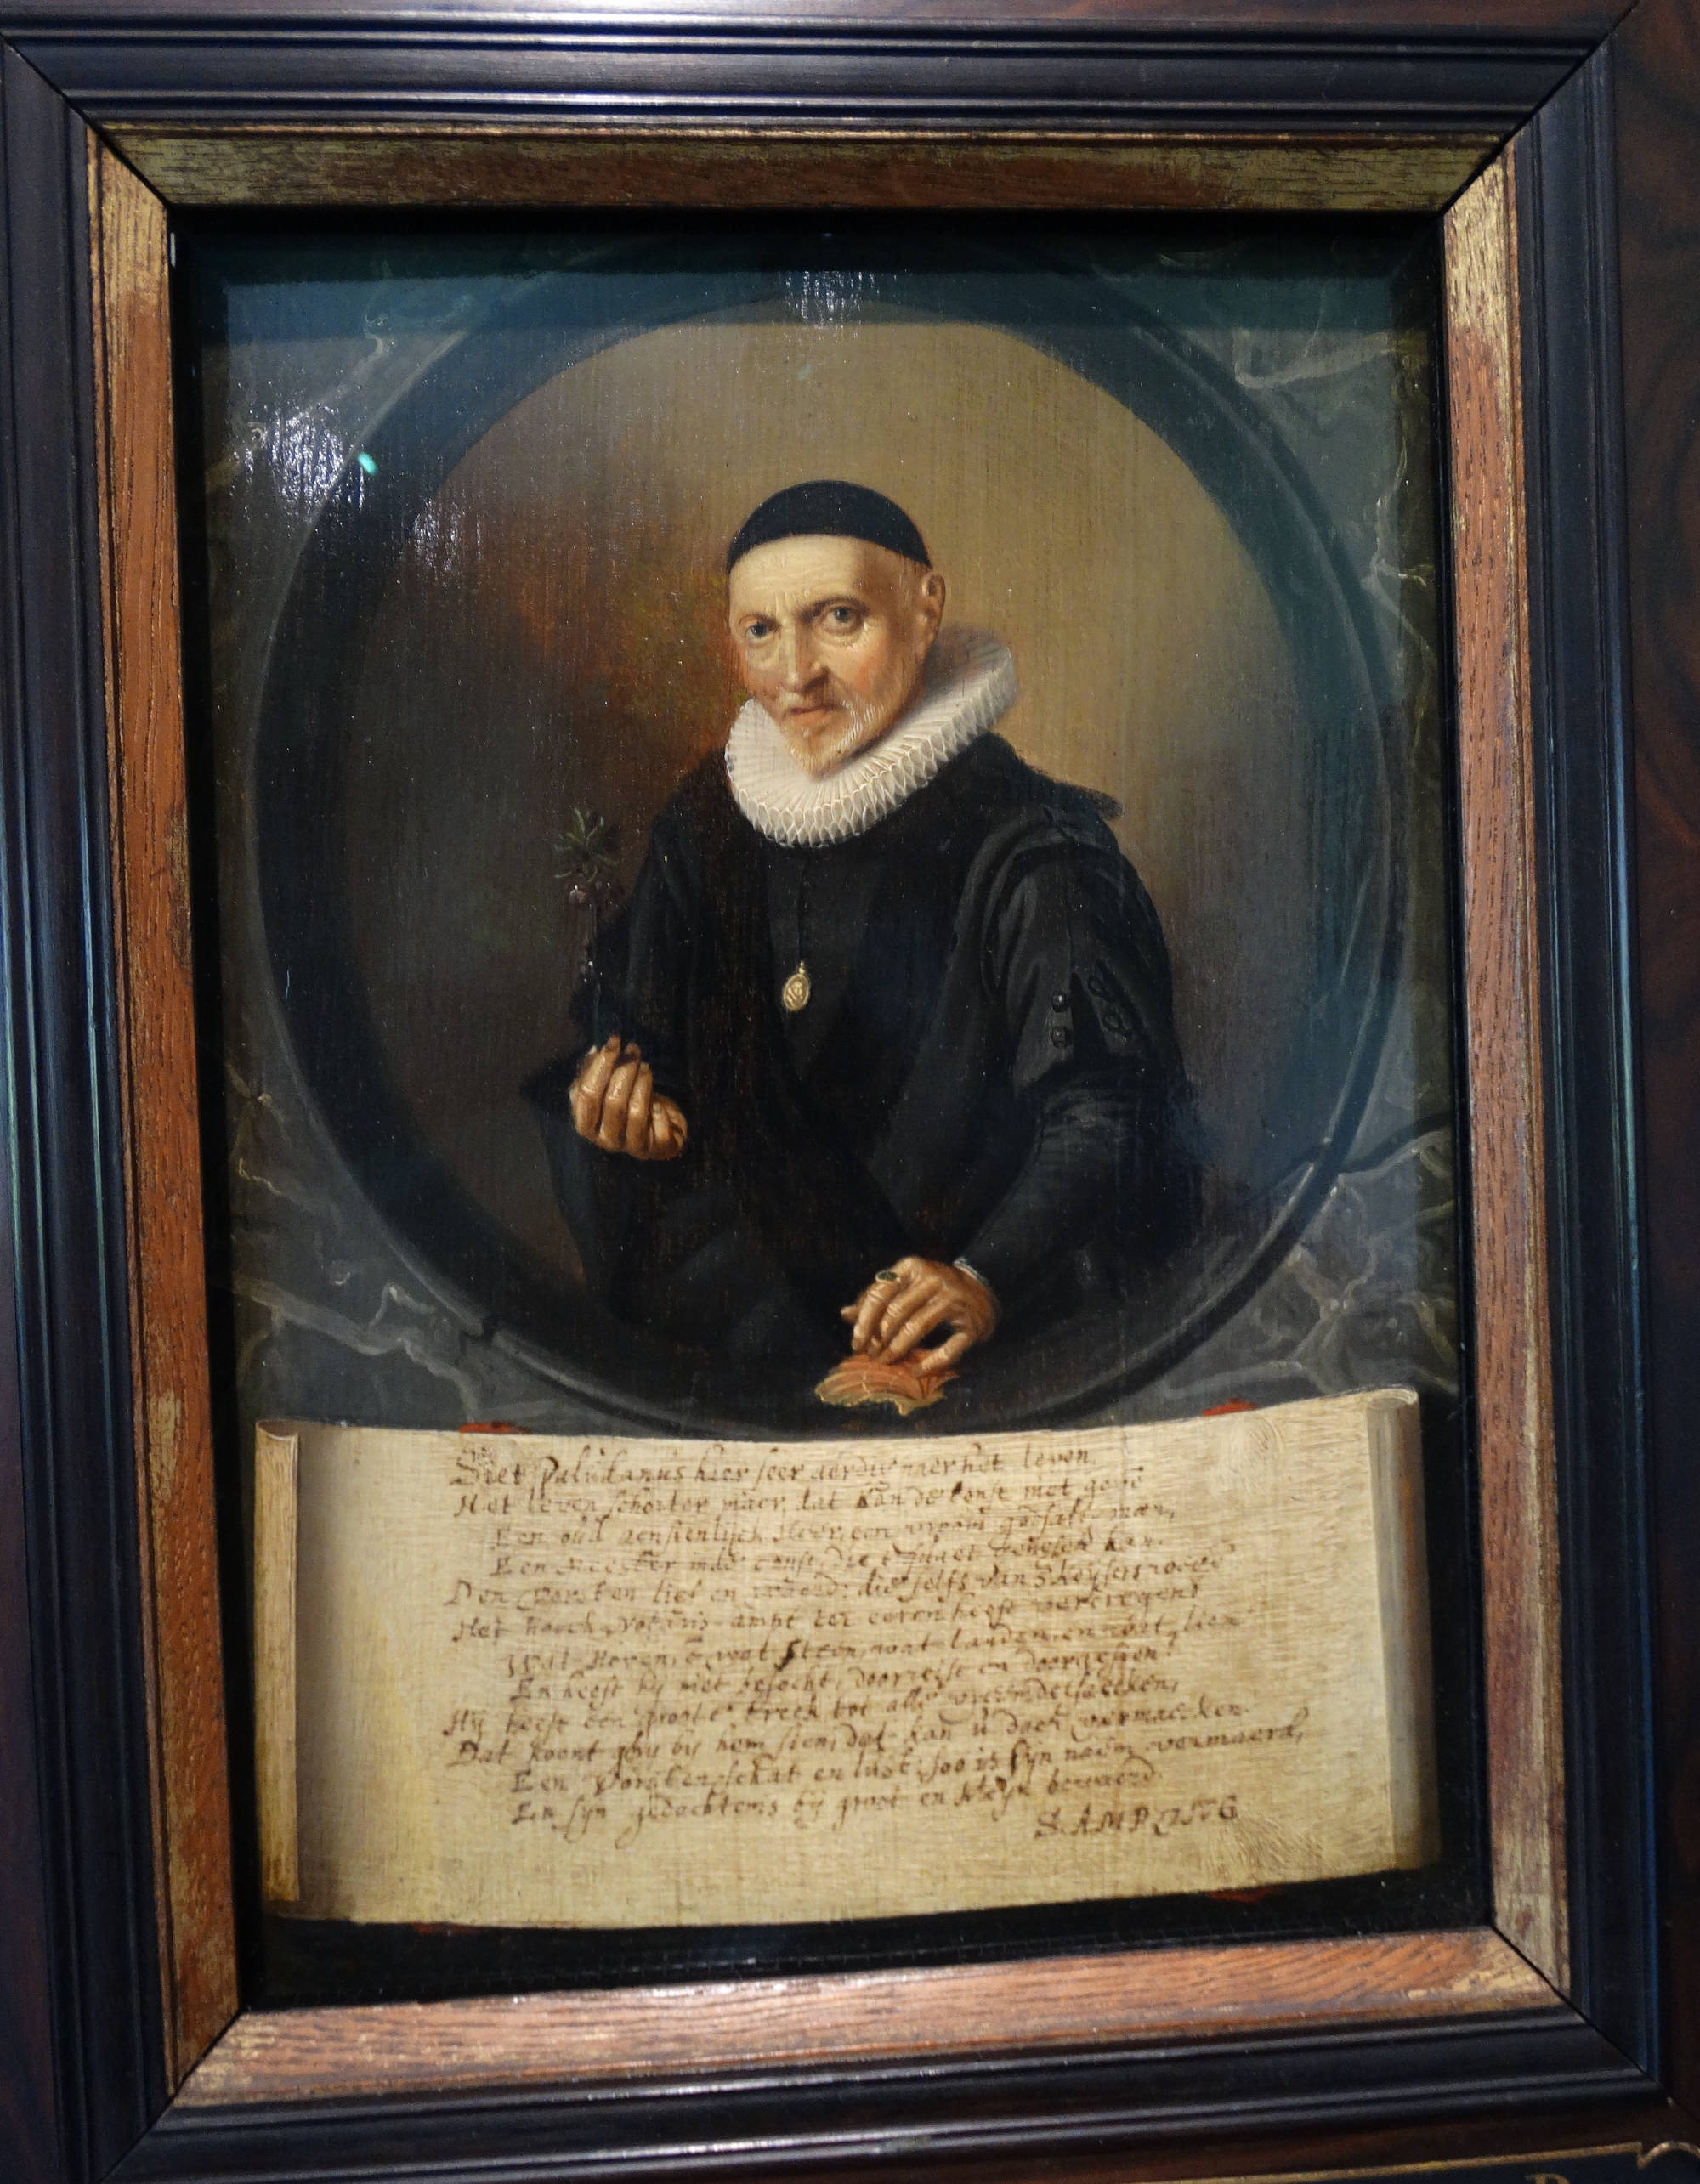 Siet Paludanus hier seer aerdig naer het leven
Het leven schorter maer, dat kan de konst niet gevē
Een oud aensienlijck Heer, een vroom man,
Een Meester inde konst, die t kan.
Den Vorsten lief en waerd: die selfs van S Keysers
Het hooch Notaris-ampt ter eeren heeft vercregen:
Wat Hoven, wat steen, wat landen, en wat lien
En heeft hy niet besocht, doorreist en doorgesien?
Hy heeft een groote treck tot alle vreemde saecken,
Dat koont ghy by hem sien, dat kan u doch vermaecken.
Een Vorsten schat en lust: soo is syn naem vermaerd,
En syn gedachtenis by groot en kleyn bewaerd.
S. AMPZING